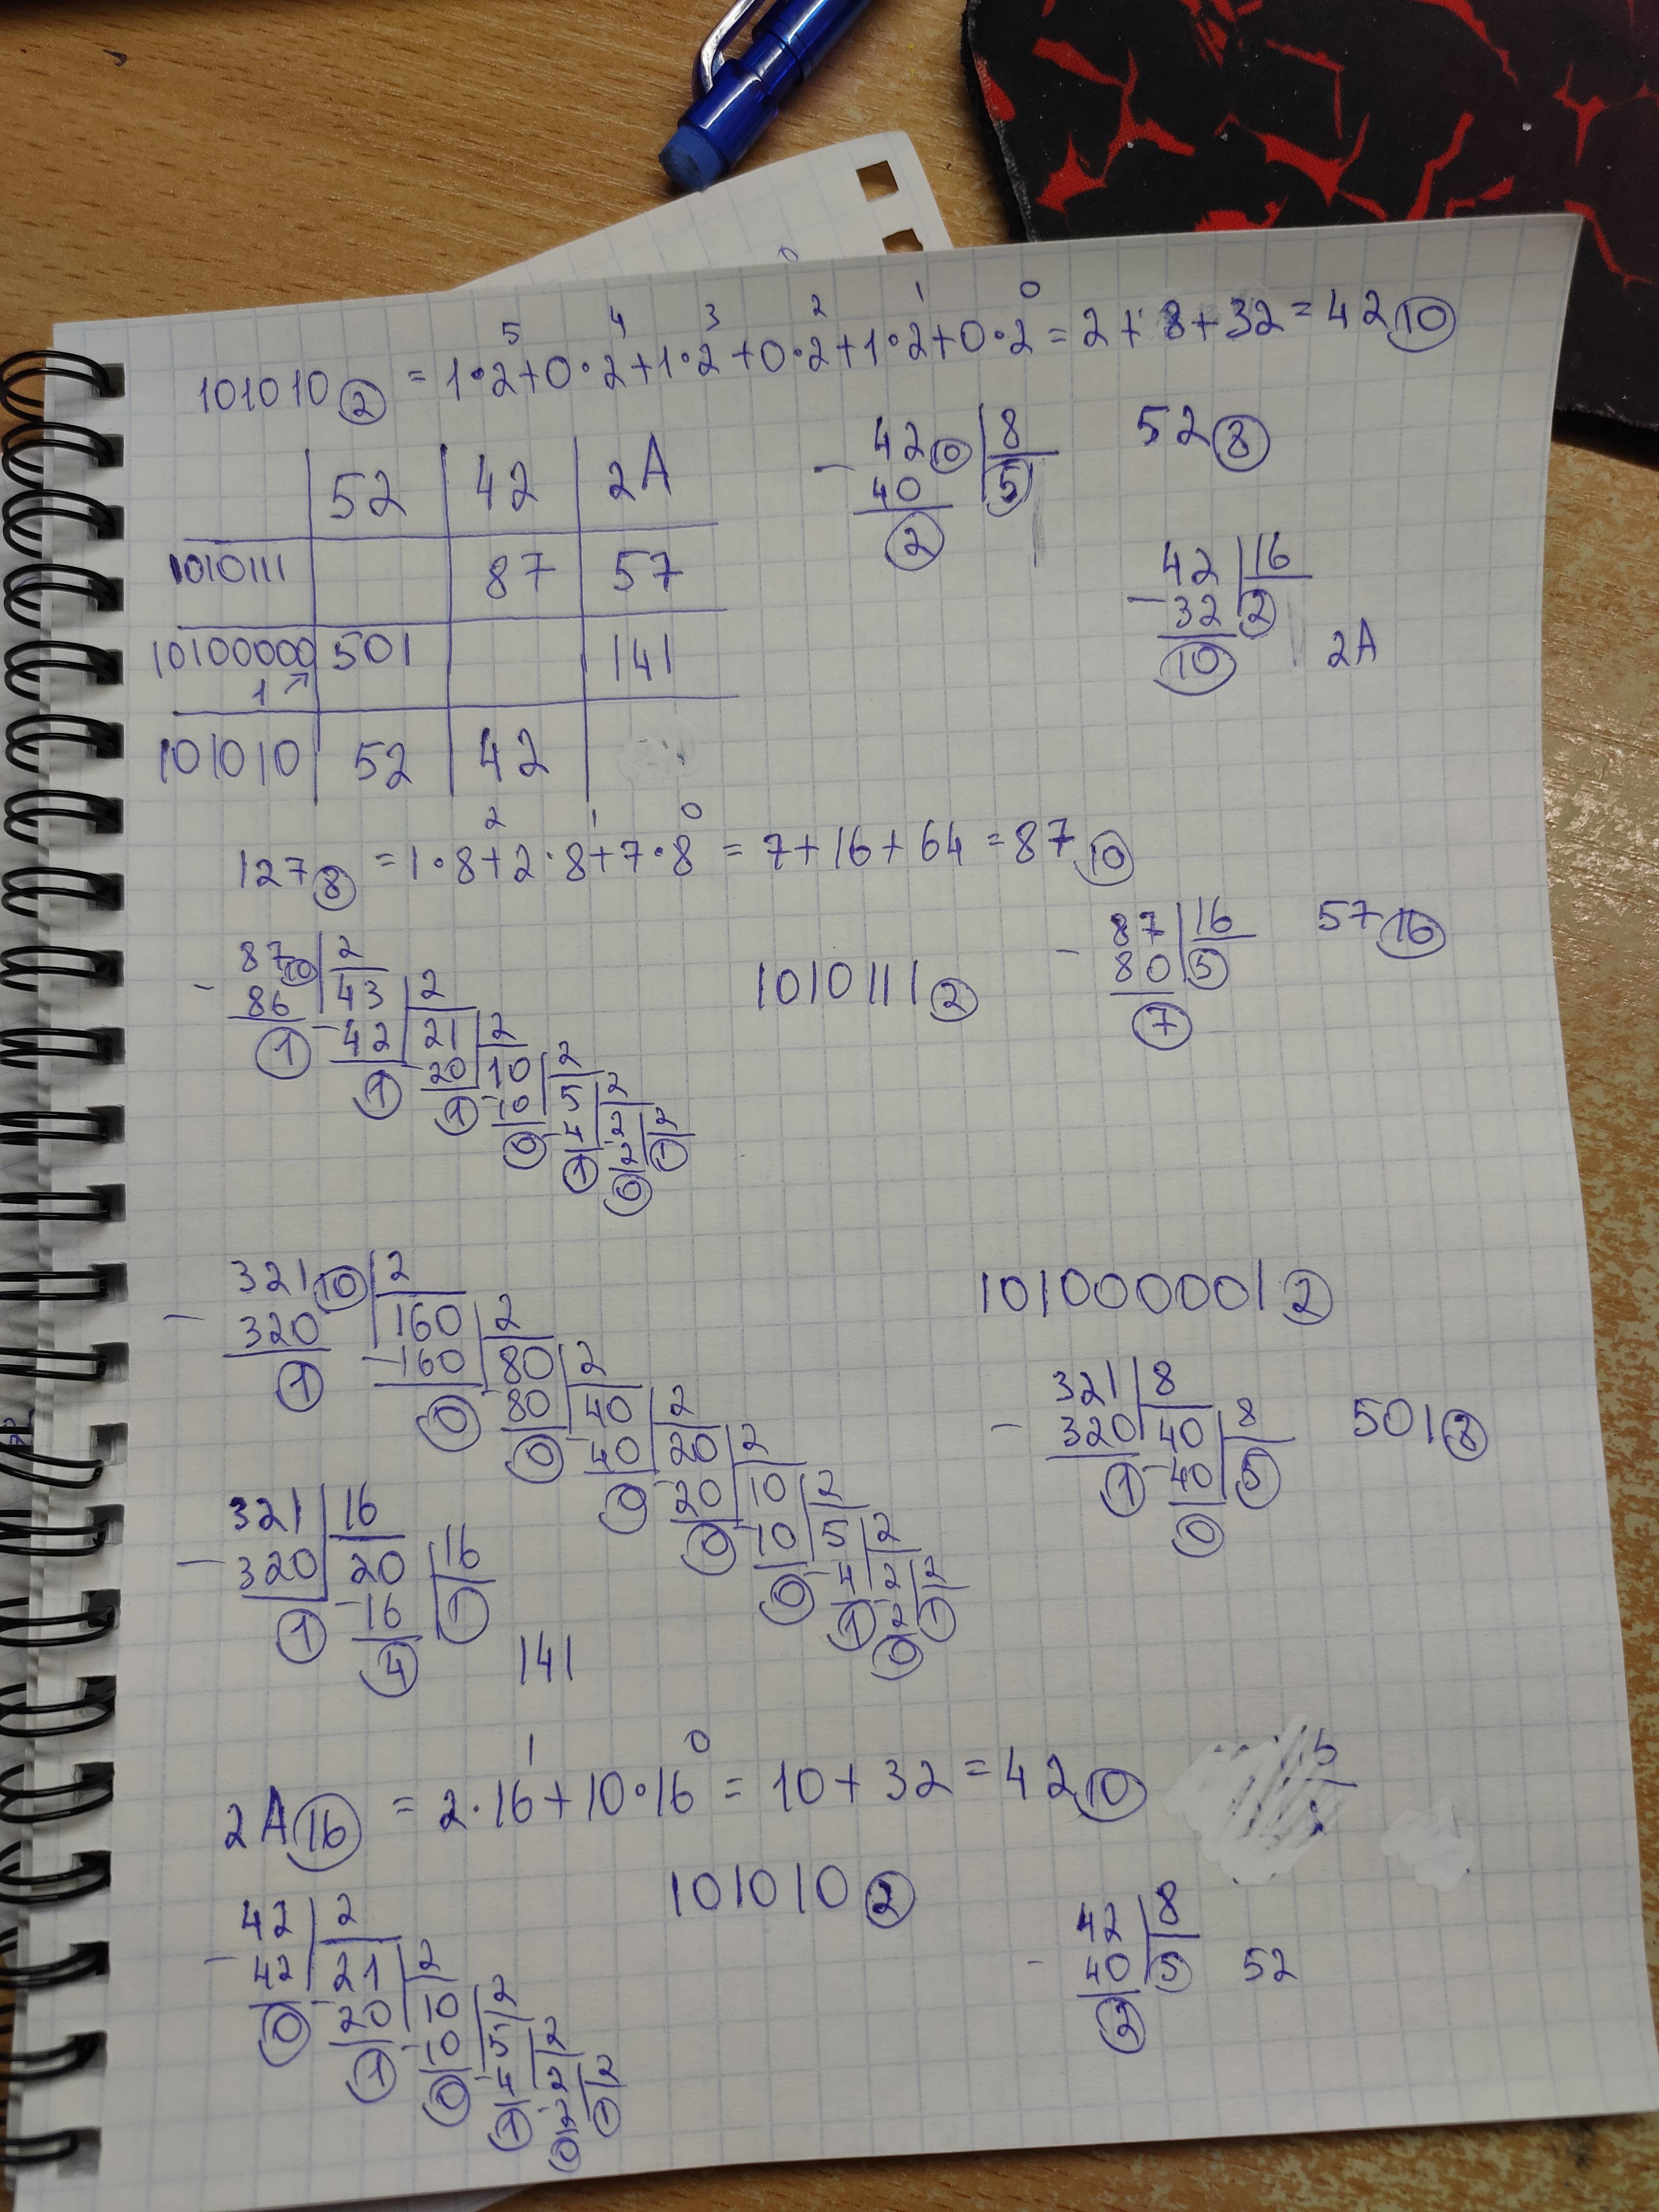 101010② = 1·2⁵+0·2⁴+1·2³+0·2²+1·2¹+0·2⁰=2+8+32=42⑩
52 42 2A
1010111 87 57
10100000 501 141
1↗
101010 52 42
42⑩ 8
- 40 5
2
52⑧
42 16
-32 2
10
2A
127⑧ =1·8²+2·8¹+7·8⁰ = 7+16+64=87⑩
87⑩ 2
- 86 43 2
1 -42 21 2
1 20 10 2
1 10 5 2
0 4 2 2
1 2 1
0
1010111②
87 16
- 80 5
7
57⑯
321⑩ 2
- 320 160 2
1 -160 80 2
0 80 40 2
0 40 20 2
0 20 10 2
0 10 5 2
0 4 2 2
1 2 1
0
101000001②
321 8
- 320 40 8
1 -40 5
0
501⑧
321 16
- 320 20 16
1 -16 1
4
141
2A⑯ = 2·16¹+10·16⁰ = 10+32=42⑩
101010②
42 2
- 42 21 2
0 20 10 2
1 10 5 2
0 4 2 2
1 2 1
0
42 8
- 40 5
2
52